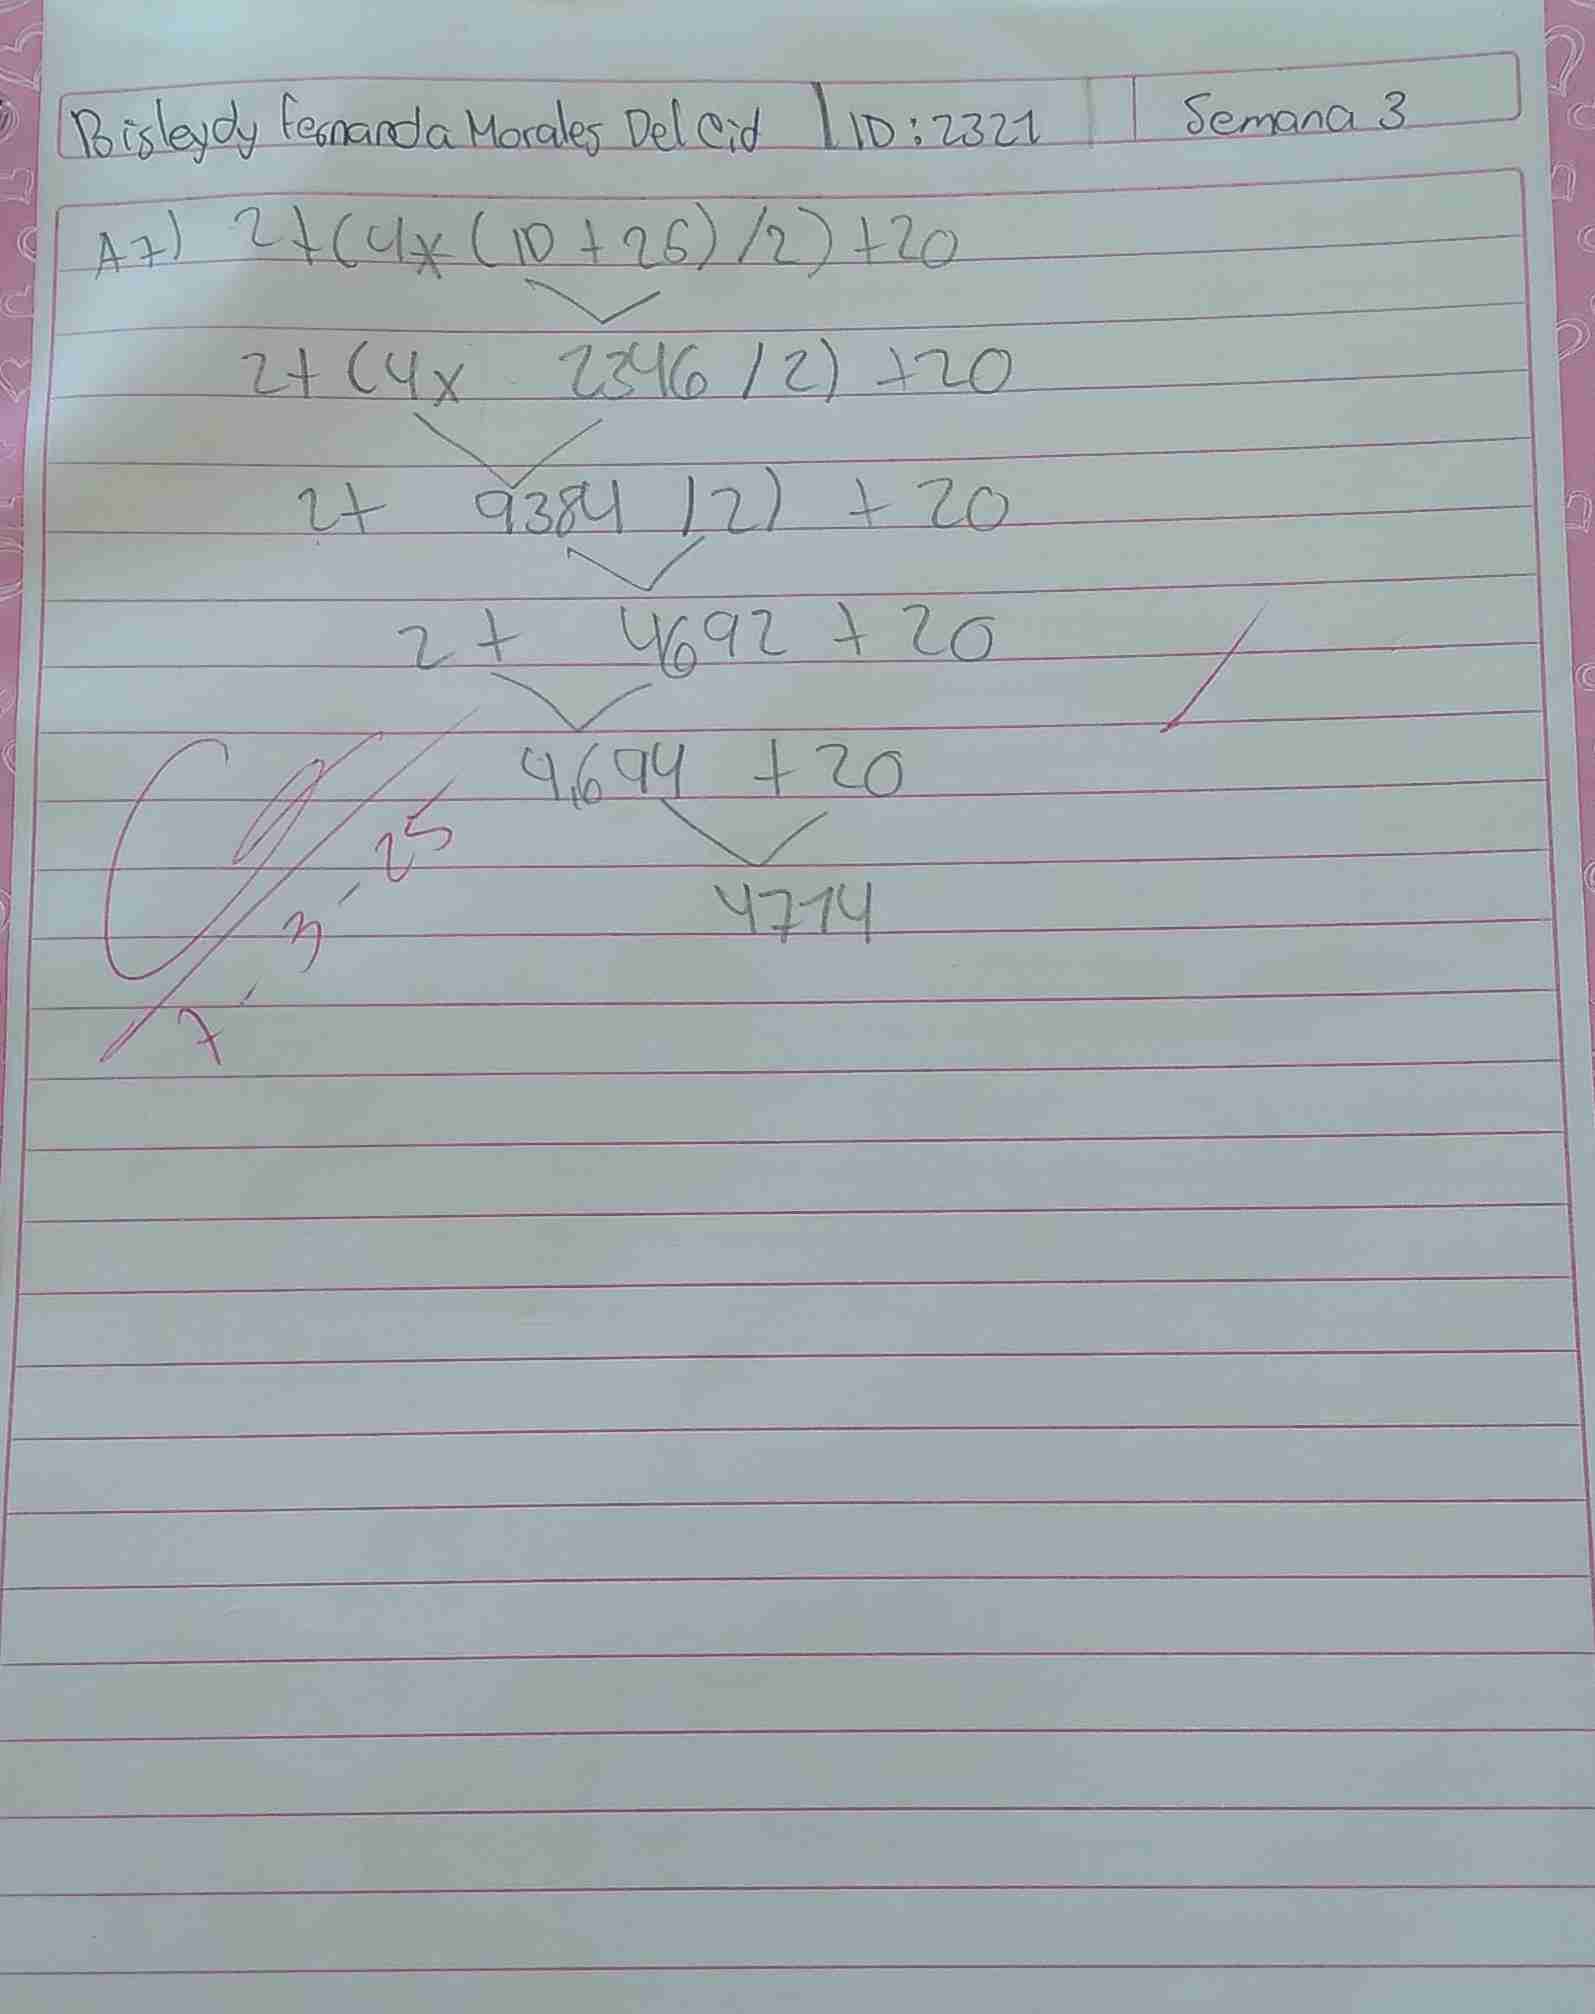 Bisleydy Fernanda Morales Del Cid | ID: 2321 | Semana 3
A7) 2+(4x(10+26)/2)+20
2+(4x 2346/2)+20
2+ 9384 /2) + 20
2+ 4692 + 20
4,694 + 20
4714
7/3/25